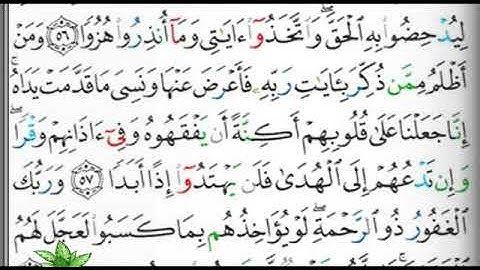 لِيُدْحِضُوا۟ بِهِ ٱلْحَقَّ ۖ وَٱتَّخَذُوٓا۟ ءَايَـٰتِى وَمَآ أُنذِرُوا۟ هُزُوًا ۝٥٦ وَمَنْ
أَظْلَمُ مِمَّن ذُكِّرَ بِـَٔايَـٰتِ رَبِّهِۦ فَأَعْرَضَ عَنْهَا وَنَسِىَ مَا قَدَّمَتْ يَدَاهُ ۚ
إِنَّا جَعَلْنَا عَلَىٰ قُلُوبِهِمْ أَكِنَّةً أَن يَفْقَهُوهُ وَفِىٓ ءَاذَانِهِمْ وَقْرًا ۖ
وَإِن تَدْعُهُمْ إِلَى ٱلْهُدَىٰ فَلَن يَهْتَدُوٓا۟ إِذًا أَبَدًا ۝٥٧ وَرَبُّكَ
ٱلْغَفُورُ ذُو ٱلرَّحْمَةِ ۖ لَوْ يُؤَاخِذُهُم بِمَا كَسَبُوا۟ لَعَجَّلَ لَهُمُ